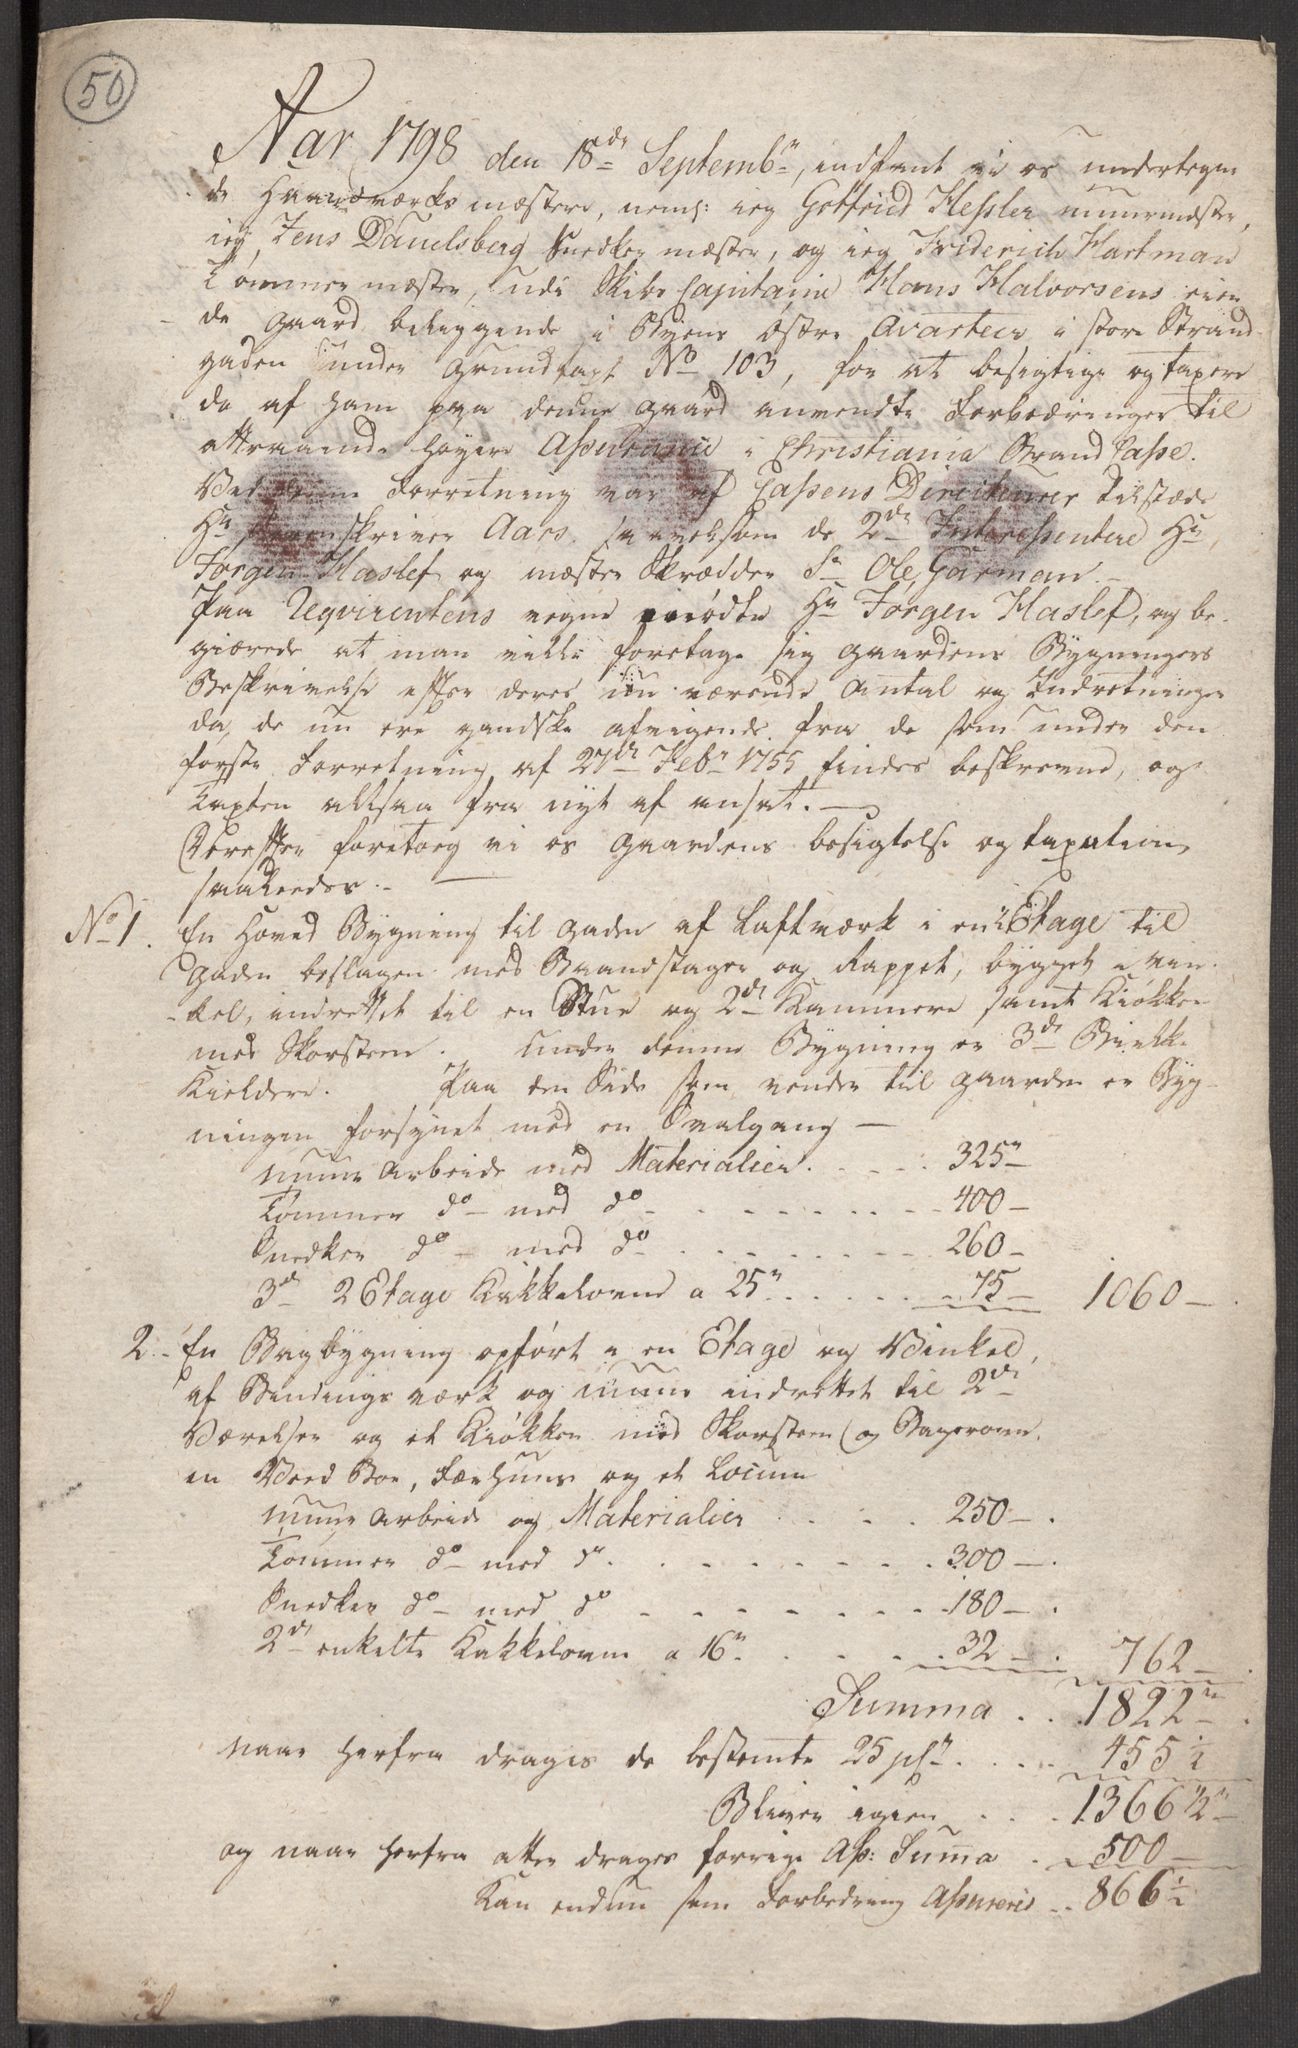 50
Aar 1798 den 18de Septembr, indfant vi os undertegne
de Haandværks mæstere, neml: ieg Gotfried Hessler muurmæster,
ieg Jens Danielsberg Snedker mæster, og ieg Friderich Hartman
Tømmer mæster, udi Skibs Capitaine Hans Halvorsens eien
de gaard beliggende i Byens østre Qvarteer i store Strand
gaden under Grundtaxt No 103, for at besigtige og taxere
de af ham paa denne gaard anvendte Forbedringer til
attraaende høyere Assurance i Christiania Brand Casse.
Ved denne Forretning var af Cassens Directeurer tilstæde
Hr skriver Aars saavelsom de 2de Interessentere Hr
Jørgen Haslef og mæster Skrædder Sr Ole Garman.
Paa Reqvirentens vegne mødte Hr Jørgen Haslef, og be-
giærede at man ville foretage sig gaardens Bygningers
Beskrivelse efter deres nu værende Antal og Indretninger
da de nu ere gandske afvigende fra de som under den
første Forretning af 27de Febr 1755 findes beskrevne, og
Taxten altsaa fra nyt af ansat.
Derefter foretog vi os gaardens besigtelse og taxation
saaledes.
No 1. En Hoved Bygning til gaden af Laftværk i en Etage til
gaden beslagen med Brandstager og Rappet, bygget i vin-
kel, indrettet til en Stue og 2de Kammere samt Kiøkken
med Skorsteen. Under denne Bygning er 3de Bielke
Kieldere. Paa den Side som vender til gaarden er Byg-
ningen forsynet med en Svalgang
muur Arbeide med Materialier . . . . 325r
Tømmer do med do . . . . 400
Snedker do med do . . . . 260
3de 2 Etage Kakkelovne a 25r . . . . 75 1060
2. En Bagbygning opført i en Etage og Vinkel,
af Bindings værk og muur indrettet til 2de
Værelser og et Kiøkken med Skorsteen og Bagerovn
en Veed Boe, Fæehuus og et Locum
muur Arbeide og Materialier . . . . 250
Tømmer do med do . . . . 300
Snedker do med do . . . . 180
2de enkelte Kakkelovne a 16r . . . . 32 762
Summa . . 1822r
naar herfra drages de bestemte 25 pCt . . . . 455 1/2
Bliver igien . . . 1366 1/2r
og naar herfra atter drages forrige Ass: Suma . 500
Kan endnu som Forbedring Assureris . . 866 1/2